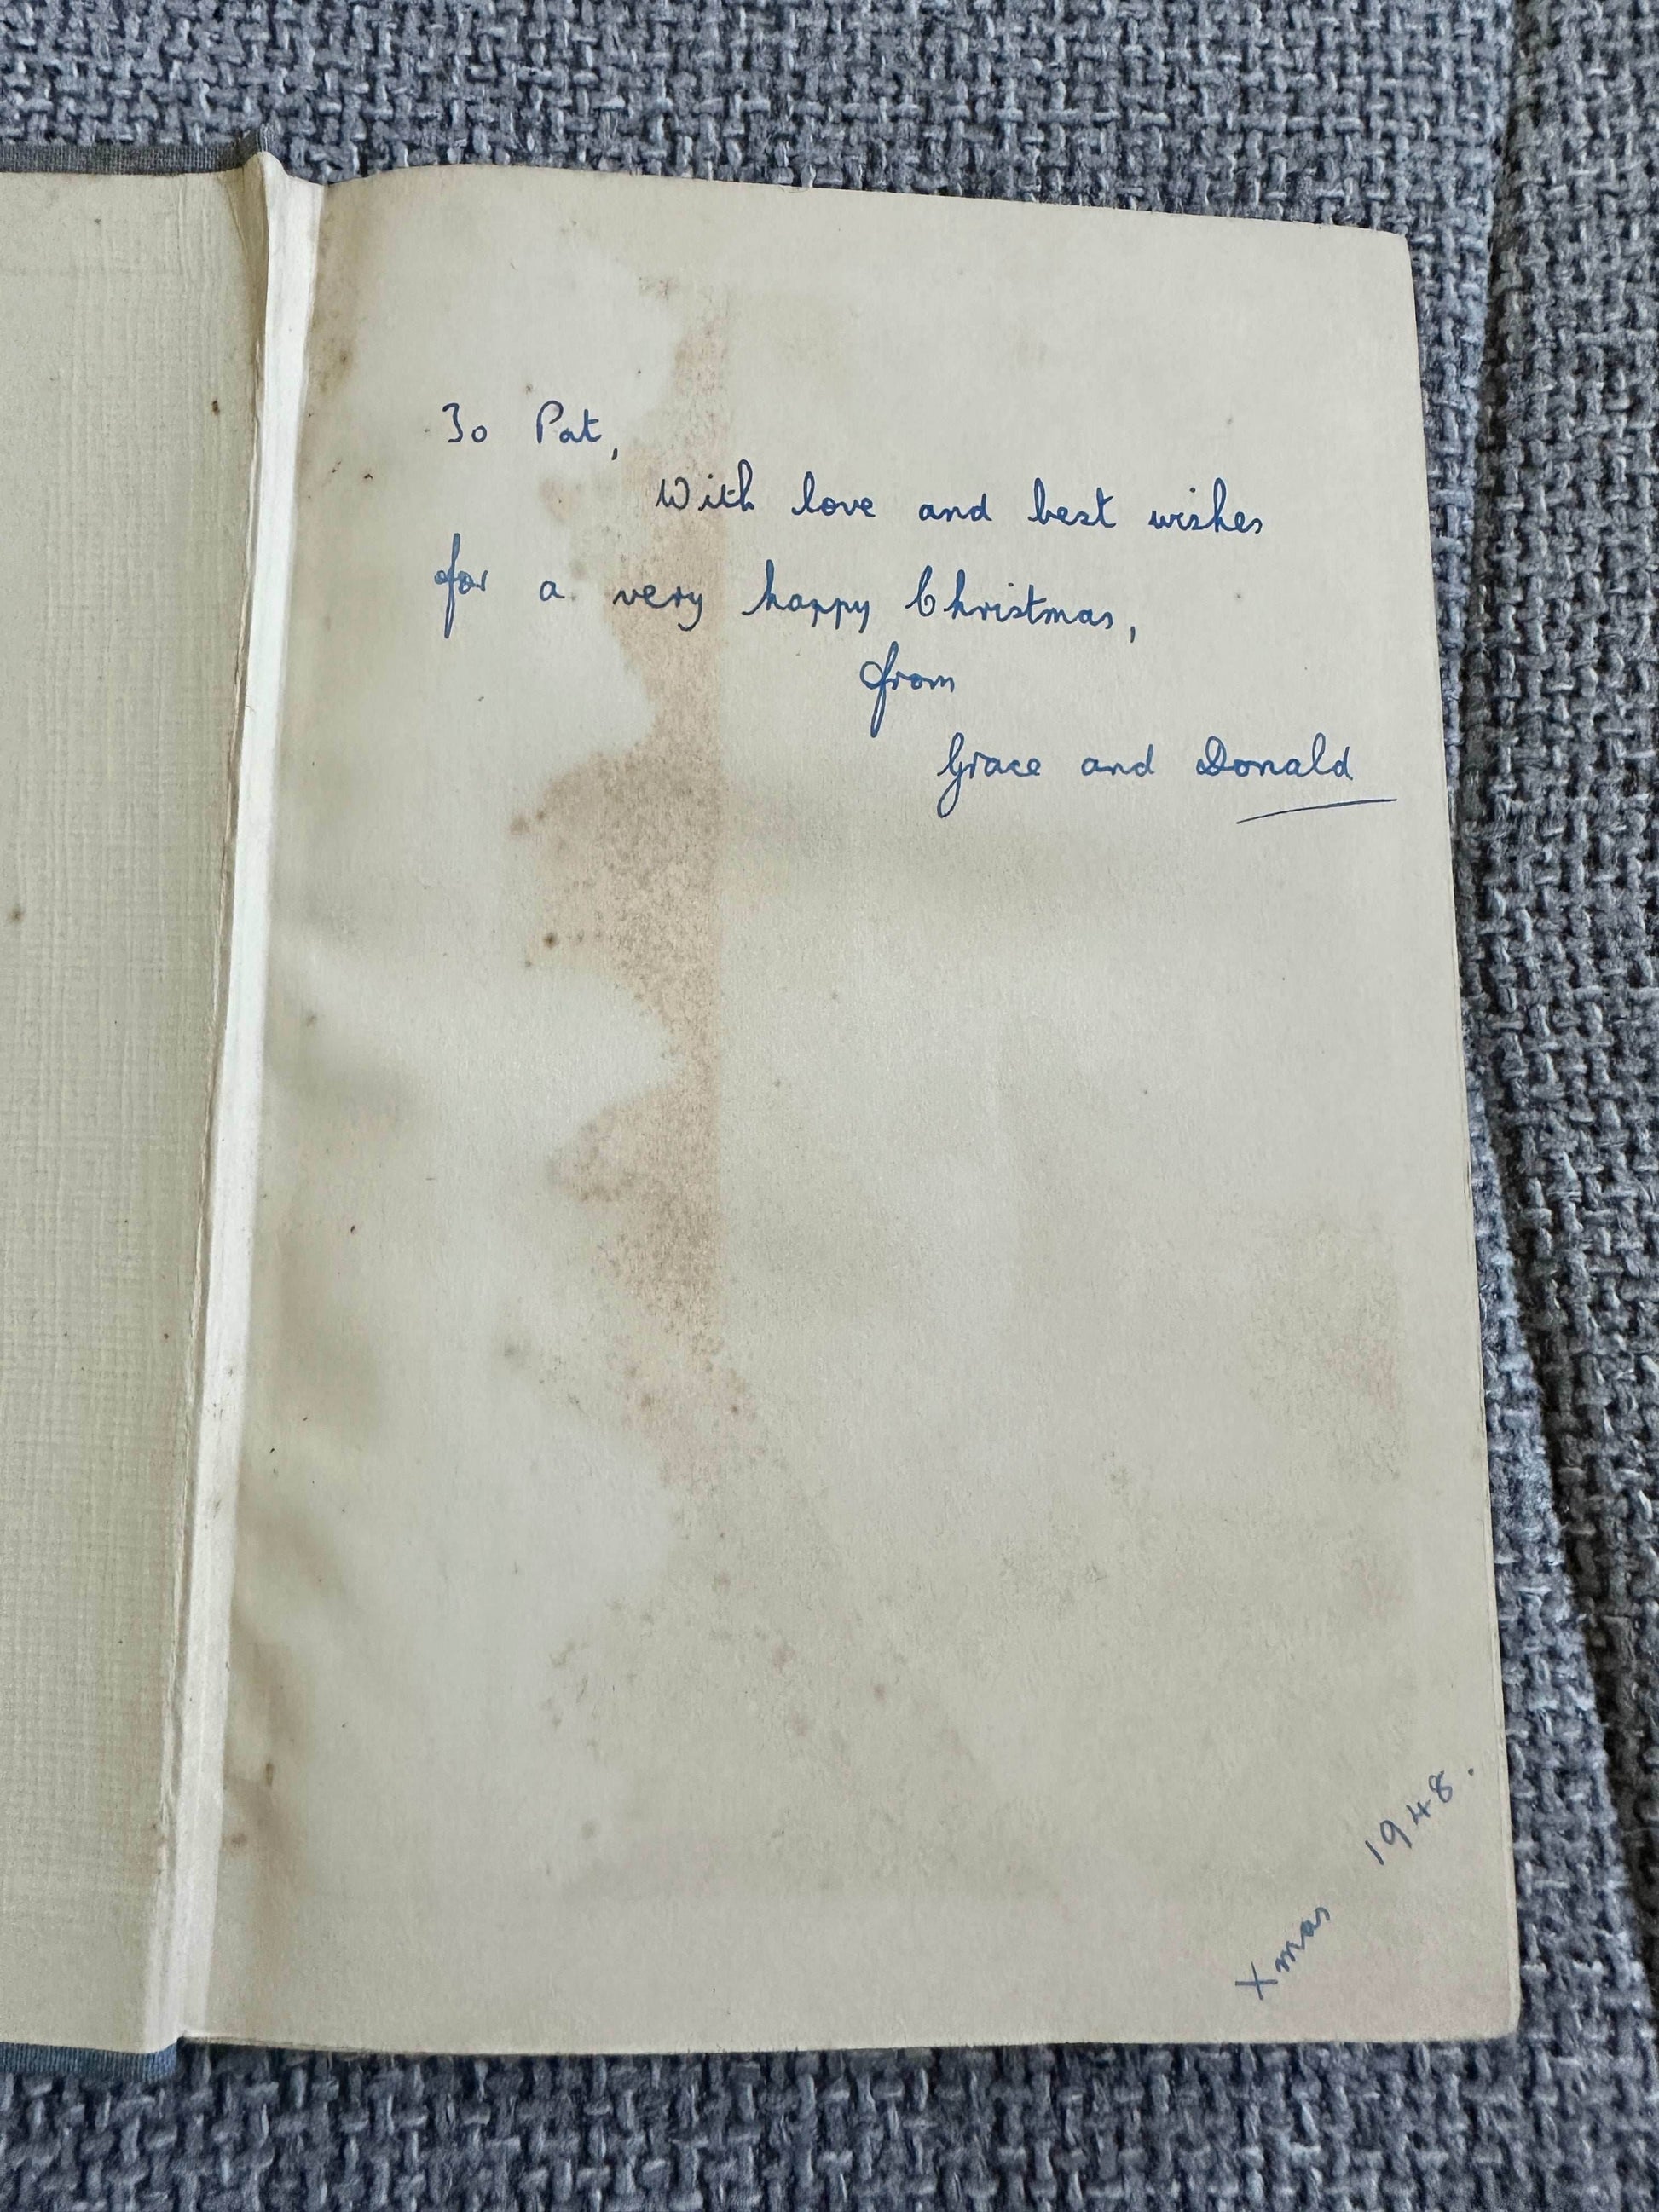 To Pat,
With love and best wishes
for a very happy Christmas,
from
Grace and Donald
Xmas 1948.